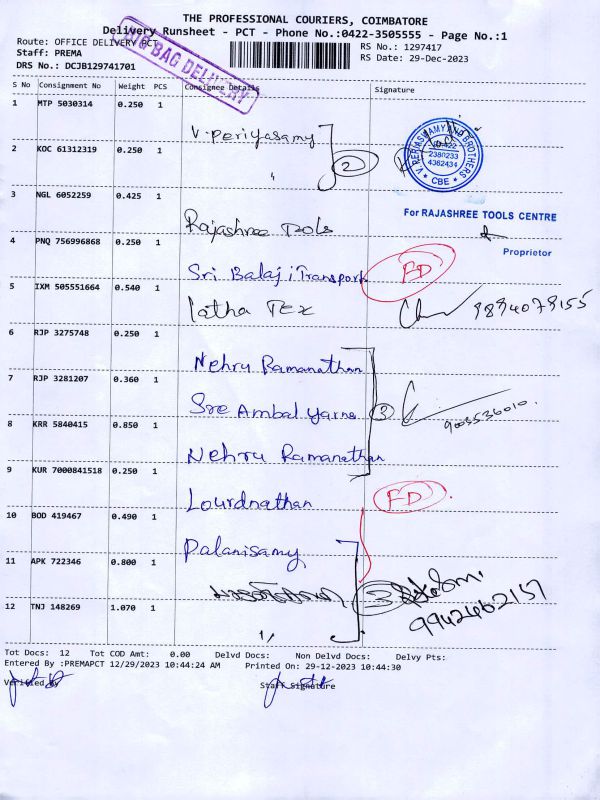 THE PROFESSIONAL COURIERS, COIMBATORE
Delivery Runsheet - PCT - Phone No.:0422-3505555 - Page No.:1
Route: OFFICE DELIVERY PCT
Staff: PREMA
DRS No.: DCJB129741701
RS No.: 1297417
RS Date: 29-Dec-2023
BAG DELIVERY
S No Consignment No Weight PCS Consignee Details Signature
1 MTP 5030314 0.250 1
V. periyasamy
2 KOC 61312319 0.250 1
"
2
V. PERIYASWAMY AND BROTHERS
2380233
4362434
CBE
3 NGL 6052259 0.425 1
Rajashree Tools
For RAJASHREE TOOLS CENTRE
Proprietor
4 PNQ 756996868 0.250 1
Sri Balaji Transport
FD
5 IXM 505551664 0.540 1
latha TEX
9894079155
6 RJP 3275748 0.250 1
Nehru Ramanathan
7 RJP 3281207 0.360 1
Sre Ambal yarns
3
9003536010.
8 KRR 5840415 0.850 1
Nehru Ramanathan
9 KUR 7000841518 0.250 1
Lourdnathan
FD
10 BOD 419467 0.490 1
Palanisamy
11 APK 722346 0.800 1
3
9942462157
12 TNJ 148269 1.070 1
Tot Docs: 12 Tot COD Amt: 0.00 Delvd Docs: Non Delvd Docs: Delvy Pts:
Entered By :PREMAPCT 12/29/2023 10:44:24 AM Printed On: 29-12-2023 10:44:30
Verified By
Staff Signature